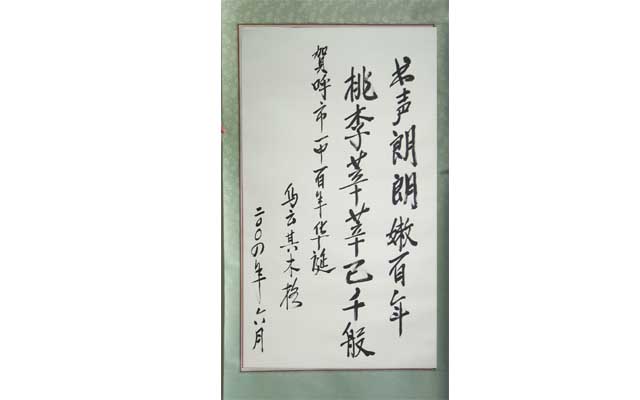 书声朗朗嫩百年
桃李莘莘已千般
贺呼市一中百年华诞
乌云其木格
二〇〇四年六月